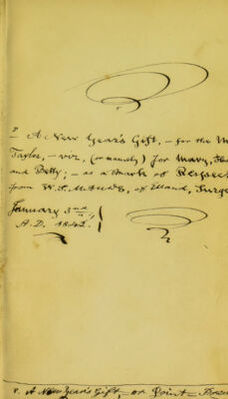 A New Year's Gift, - for the M
Taylor, - viz, (or namely) for Mary,
and Betty; - as a Mark of Respect
from W. S.
January 3rd
A.D. 1842.
A New Year's Gift, - or Point